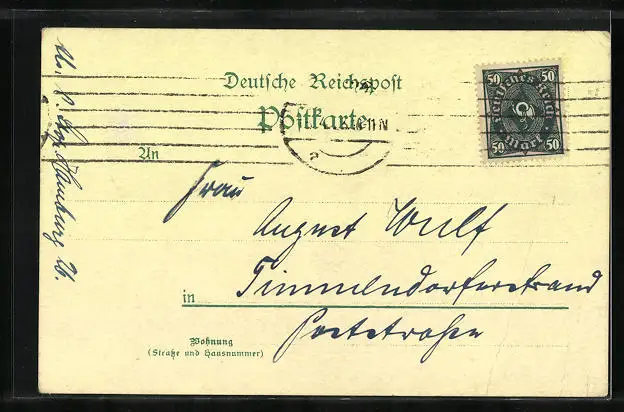 Deutsche Reichspost
Postkarte
An
Frau
August Wulf
in Timmendorferstrand
Poststrasse
Wohnung
(Straße und Hausnummer)
50 50
Deutsches Reich
Mark
50 50
Hamburg 26.